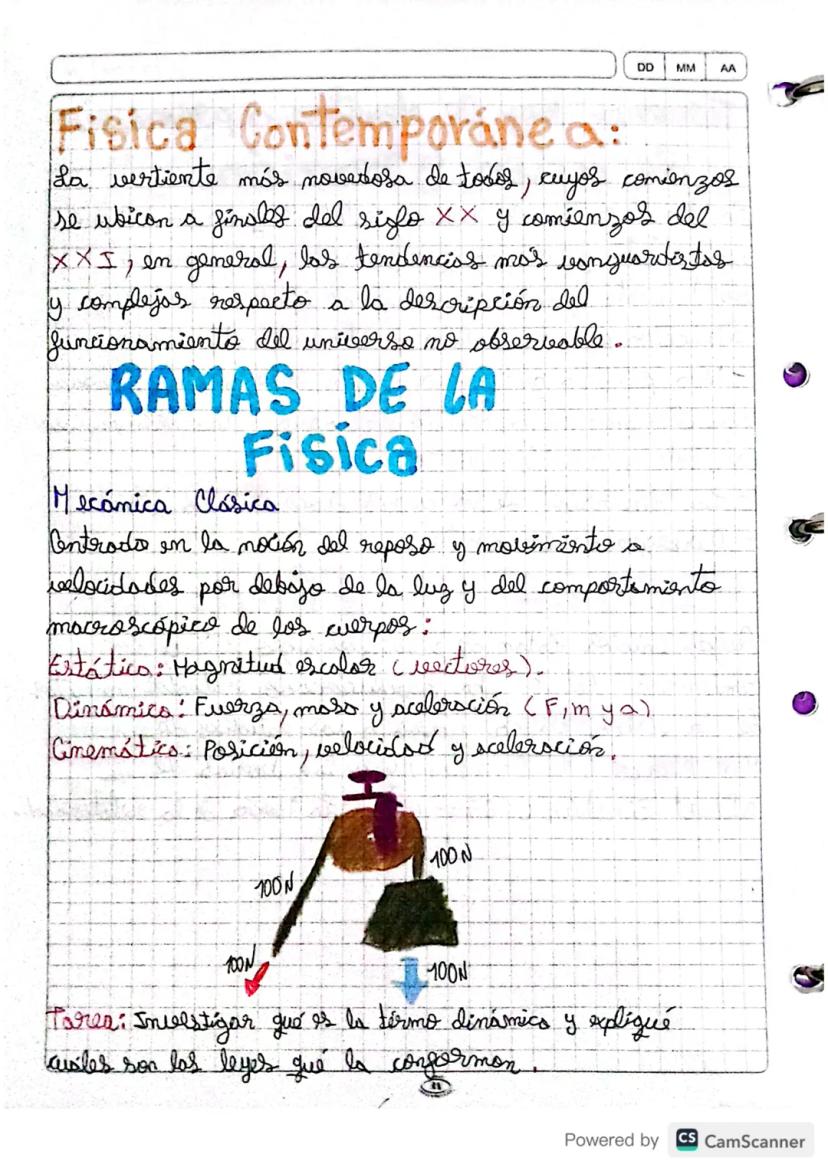 DD MM AA
Fisica Contemporánea:
La vertiente más novedosa de todos, cuyos comienzos
se ubican a finales del siglo XX y comienzos del
XXI, en general, las tendencias más vanguardistas
y complejas respecto a la descripción del
funcionamiento del universo no observable.
RAMAS DE LA
Fisíca
Mecánica Clásica
Centrado en la noción del reposo y movimiento a
velocidades por debajo de la luz y del comportamiento
macroscópico de los cuerpos:
Estática: Magnitud escalar (vectores).
Dinámica: Fuerza, masa y aceleración (F, m y a)
Cinemática: Posición, velocidad y aceleración.
100N
100N
100N
100N
Tarea: Investigar qué es la térmo dinámica y expliqué
cuáles son las leyes qué la conforman.
Powered by CS CamScanner